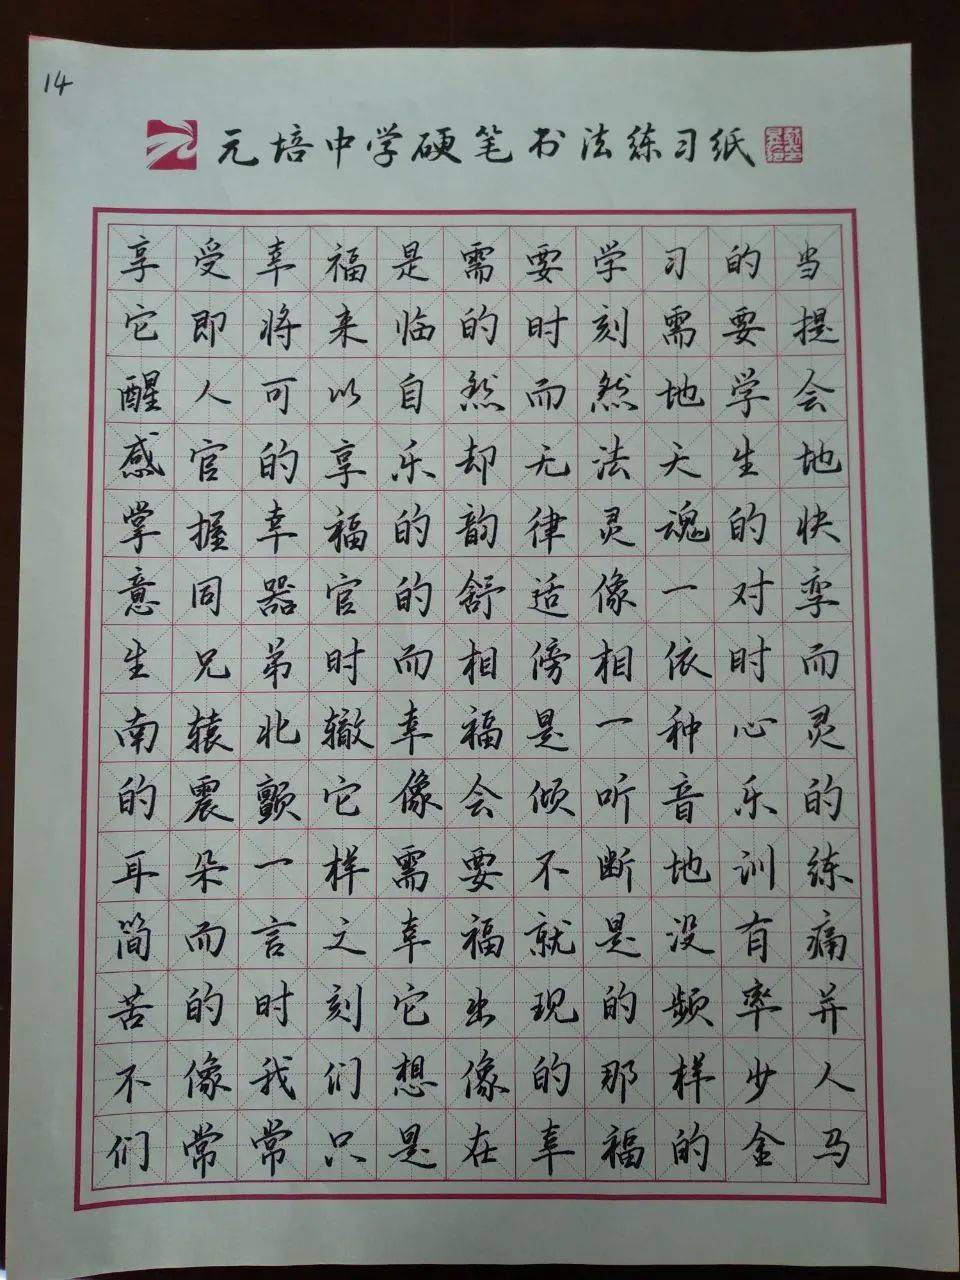 14
元培中学硬笔书法练习纸
享受幸福是需要学习的当
它即将来临的时刻需要提
醒人可以自然而然地学会
感官的享乐却无法天生地
掌握幸福的韵律灵魂的快
意同器官的舒适像一对孪
生兄弟时而相傍相依时而
南辕北辙幸福是一种心灵
的震颤它像会倾听音乐的
耳朵一样需要不断地训练
简而言之幸福就是没有痛
苦的时刻它出现的频率并
不像我们想像的那样少人
们常常只是在幸福的金马